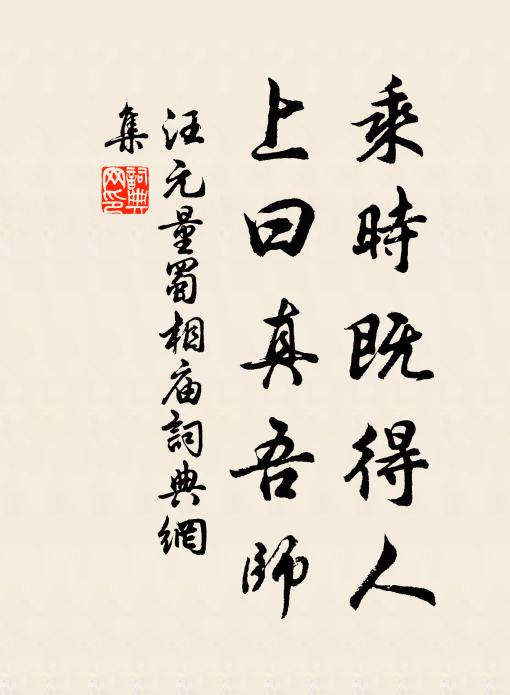 乘時既得人
上曰真吾師
汪元量蜀相庙詞典網
集
詞典網印